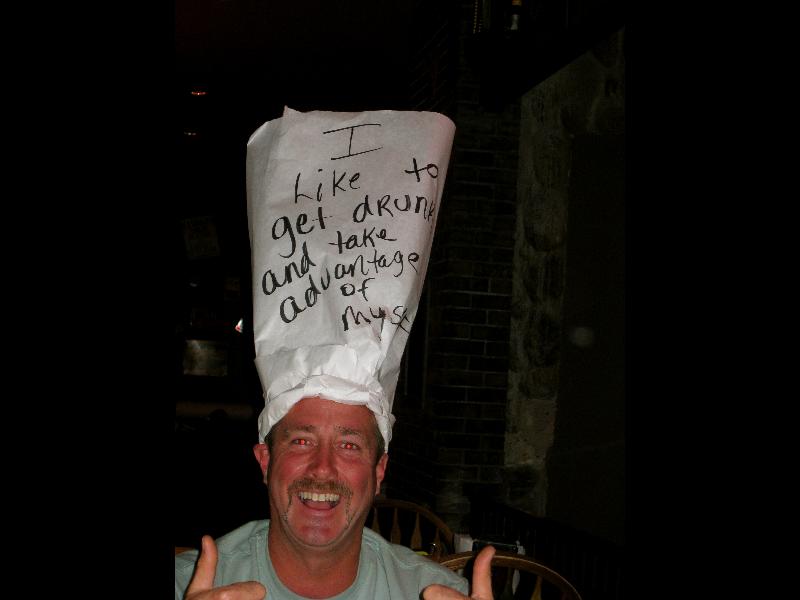 I
Like to
get drunk
and take
advantage
of
mysel